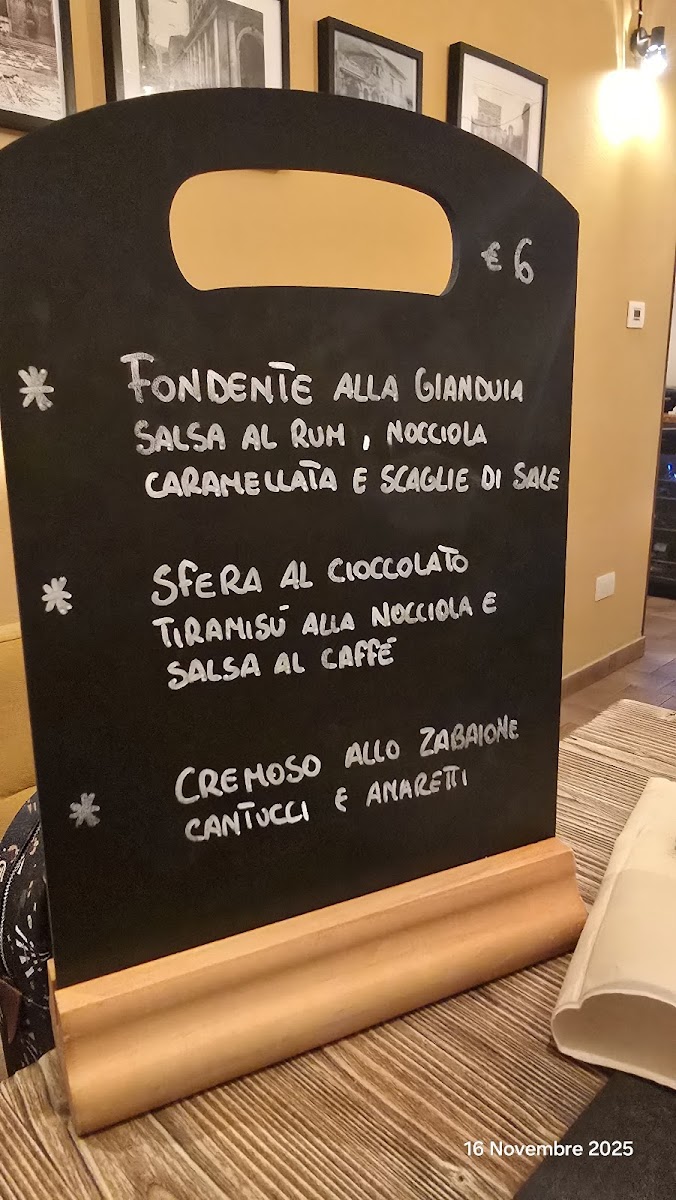 € 6
* FONDENTE ALLA GIANDUIA
SALSA AL RUM, NOCCIOLA
CARAMELLATA E SCAGLIE DI SALE
* SFERA AL CIOCCOLATO
TIRAMISÚ ALLA NOCCIOLA E
SALSA AL CAFFÉ
* CREMOSO ALLO ZABAIONE
CANTUCCI E AMARETTI
16 Novembre 2025